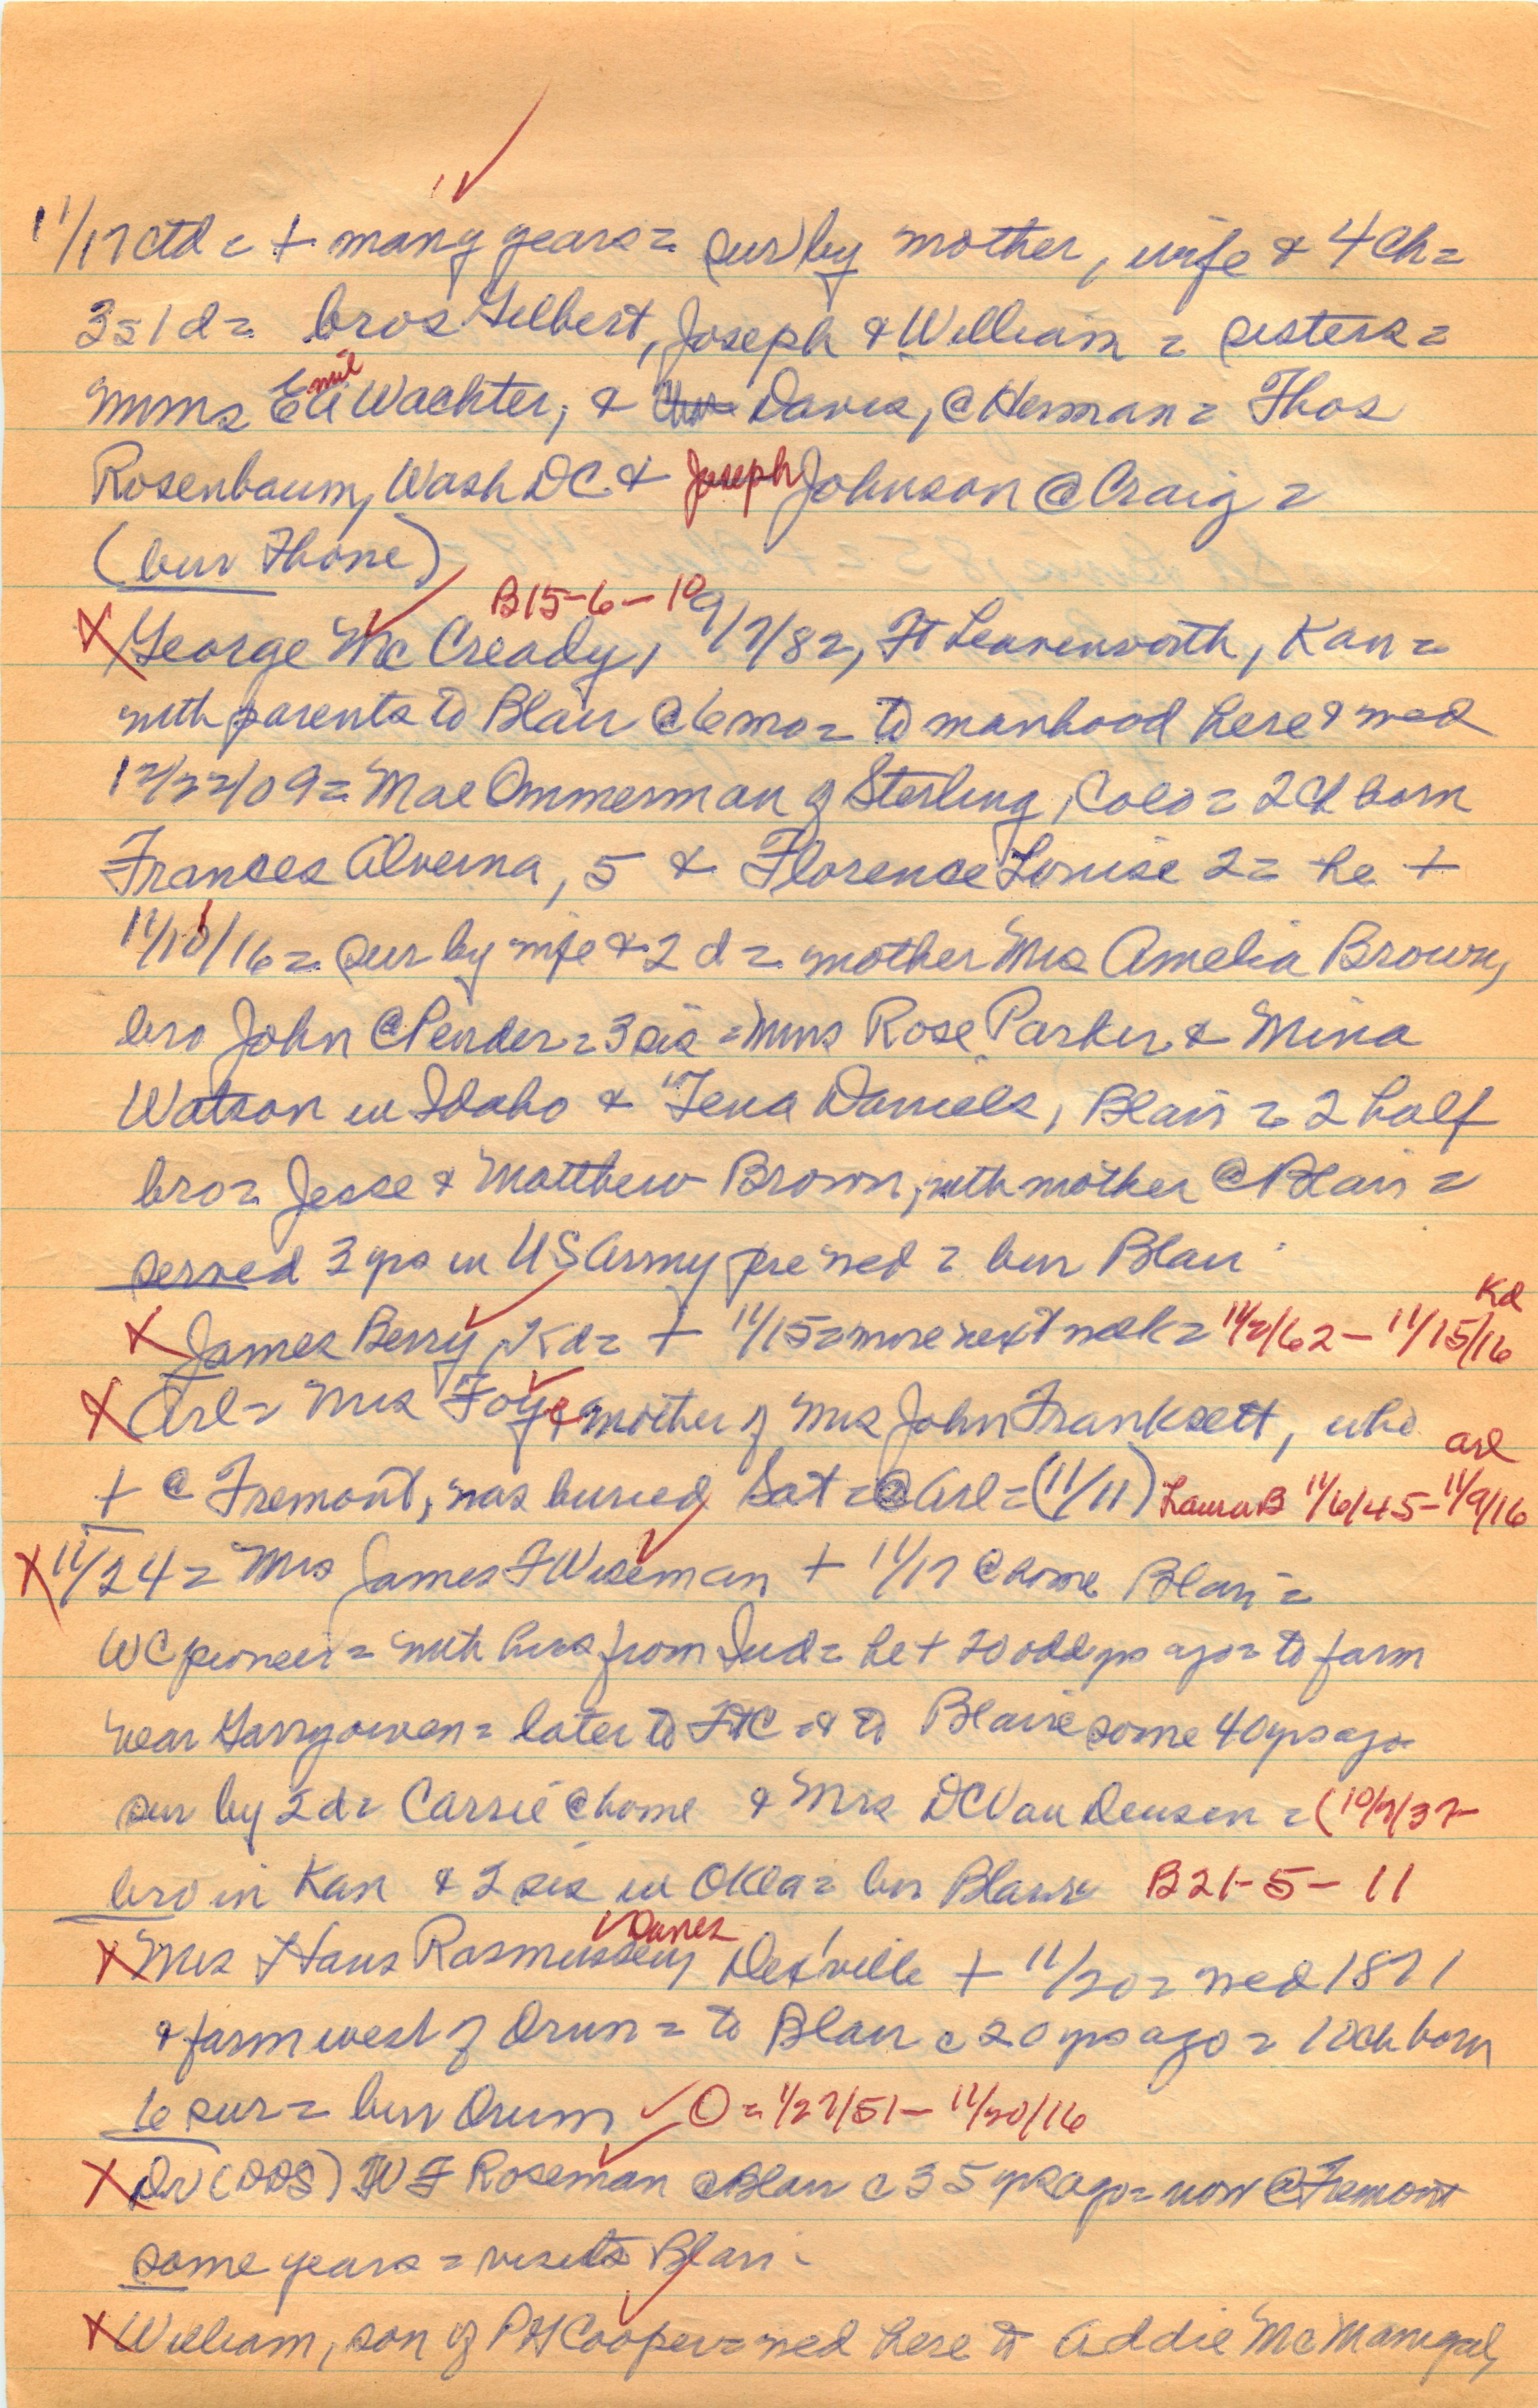 11/17 ctd = + many years = sur by mother, wife & 4 ch =
3s 1d = bros Gilbert, Joseph & William = sisters =
mms Emil Wachter, & Davis, @ Herman = Thos
Rosenbaum, Wash DC & Joseph Johnson @ Craig =
(bur Thone)
B15-6-10
X George McCready, 9/7/82, Ft Leavenworth, Kan =
with parents to Blair @ 6 mo = to manhood here & wed
12/22/09 = Mae Ammerman of Sterling, Colo = 2 ch born
Frances Alverna, 5 & Florence Louise 2 = he +
11/10/16 = sur by wife & 2 d = mother Mrs Amelia Brown,
bro John @ Pender = 3 sis = mms Rose Parker & Mina
Watson in Idaho & Tena Daniels, Blair = 2 half
bro = Jesse & Matthew Brown, with mother @ Blair =
served 3 yrs in US Army pre wed = bur Blair
X James Berry, Kd = + 11/15 = more next week = 11/2/62 - 11/15/16 Kd
X Arl = Mrs Foye mother of Mrs John Franksett, who
+ @ Fremont, was buried Sat = @ Arl = (11/11) Laura B 11/6/45 - 11/9/16 Arl
X 11/24 = Mrs James F Wiseman + 11/17 @ home Blair =
WC pioneer = with hus from Ind = he + 20 odd yrs ago = to farm
near Garryowen = later to FtC = & to Blair some 40 yrs ago
sur by 2 d = Carrie @ home & Mrs DC Van Deusen = (10/7/37-
bro in Kan & 2 sis in Okla = bur Blair B21-5-11
X Mrs Hans Rasmussen, Danes Dex'ville + 11/20 = wed 1871
& farm west of Orum = to Blair c 20 yrs ago = 10 ch born
6 sur = bur Orum O = 1/27/51 - 11/20/16
X Dr (DDS) W F Roseman @ Blair c 35 yrs ago = now @ Fremont
some years = visits Blair
X William, son of PH Cooper = wed here to Addie McManigal,